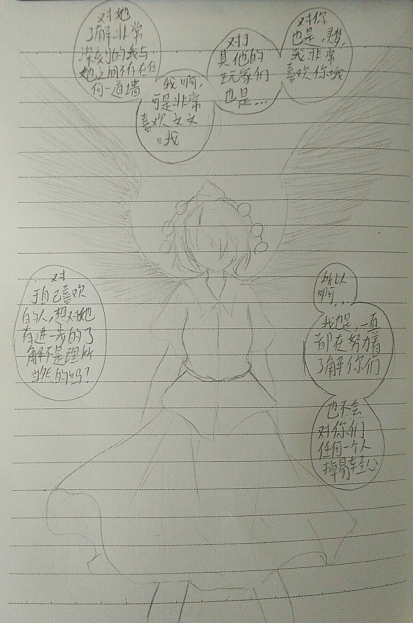 对她
了解非常
深刻的我与
她之间不存在任
何一道墙
我啊,
可是非常
喜欢文文
哦
对于
其他的
玩家们
也是...
对你
也是,
我非常
喜欢你哦
对
于自己喜欢
的人,想对她
有进一步的了
解不是理所
当然的吗?
所以
啊...
我也是,一直
都在努力着
了解你们
也不会
对你们
任何一个人
掉以轻心